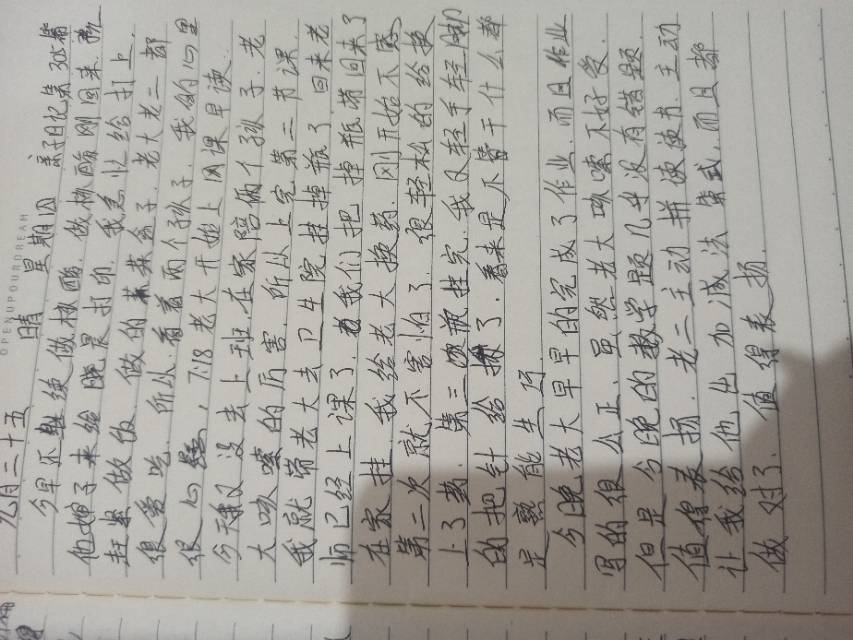 OPENUPYOURDREAM
九月二十五 晴 星期四 亲子日记第305篇
今早不继续做核酸。做核酸刚回来,
他婶子来给晓晨打印。我急忙给打上。
赶紧做饭,做的菜盒子,老大老二都
很爱吃,所以,看着两个孙子,我的心里
很心,7:18老大开始上网课早读。
今天我又没去上班,在家陪俩个孙子,老
大咳嗽的厉害,所以上完第二节课,
我就带老大去卫生院挂掉瓶了,回来老
师已经上课了。我们把掉瓶带回来了
在家挂,我给老大换药,刚开始不敢
第二次就不害怕了,很轻松的给换
上了药。第三瓶挂完,我又轻手轻脚
的把针给拔了。看来是不管干什么都
是熟能生巧
今晚老大早早的完成了作业,而且作业
写的很公正,虽然老大咳嗽不好受,
但是今晚的数学题几乎没有错题,
值得表扬。老二主动拼读读书,主动
让我给他出加减法算式,而且都
做对了,值得表扬.